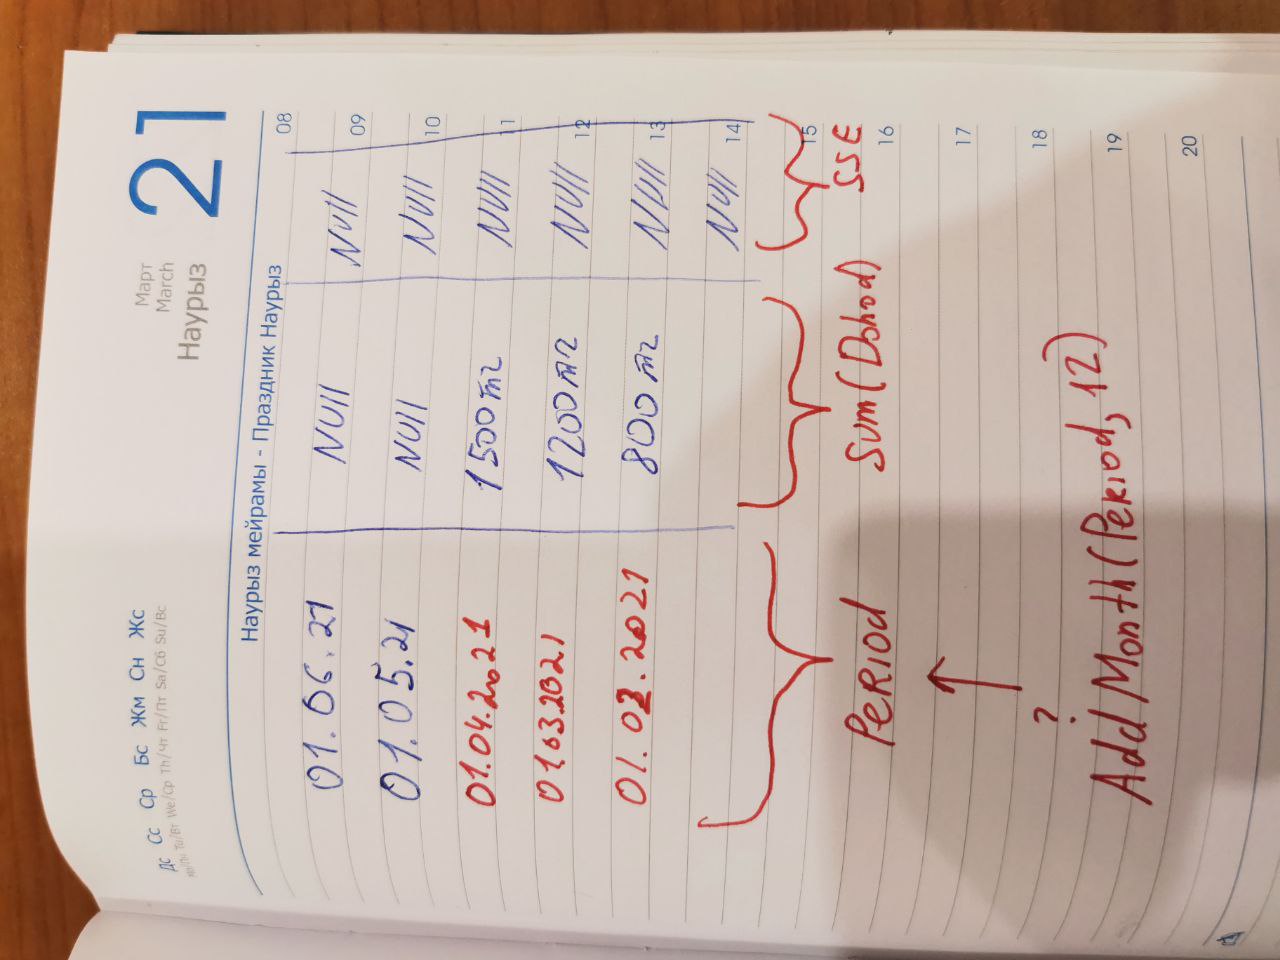 Дс Сс Ср Бс Жм Сн Жс
Mo/Пн Tu/Вт We/Ср Th/Чт Fr/Пт Sa/Сб Su/Вс
Март
March
Наурыз
21
Наурыз мейрамы - Праздник Наурыз
08
01.06.21 NUll NUll
09
01.05.21 NUll NUll
10
01.04.2021 1500тг NUll
11
01.03.2021 1200тг NUll
12
01.02.2021 800тг NUll
13
NUll
14
15
PERIOD Sum(Dohod) SSE
16
17
?
18
Add Month(PERIOD, 12)
19
20